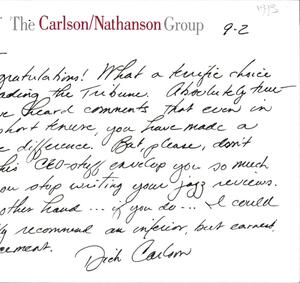 1993
The Carlson/Nathanson Group
9-2
gratulations! What a terrific choice
ading the Tribune. Absolutely true-
e heard comments that even in
short tenure, you have made a
e difference. But, please, don't
his CEO-stuff envelop you so much
ou stop writing your jazz reviews.
other hand ... if you do ... I could
ly recommend an inferior, but earnest
cement.
Dick Carlson